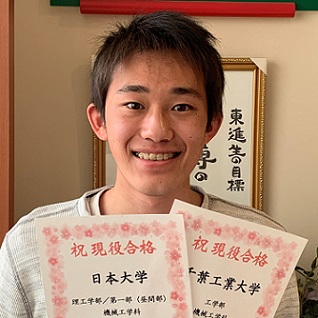 東進生の目標
祝 現役合格
日本大学
理工学部／第一部（昼間部）
機械工学科
祝 現役合格
千葉工業大学
工学部
機械工学科